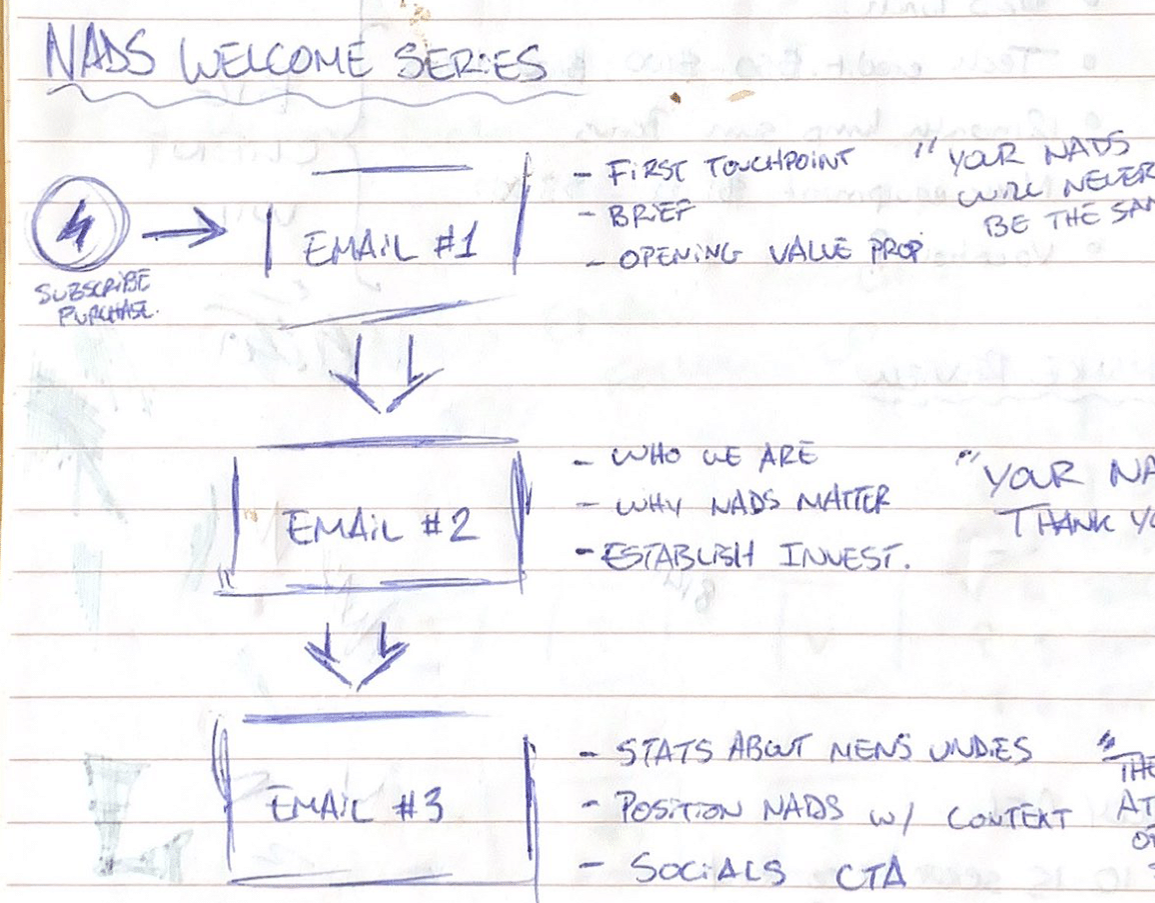 NADS WELCOME SERIES
SUBSCRIBE
PURCHASE.
EMAIL #1
- FIRST TOUCHPOINT
- BRIEF
- OPENING VALUE PROP
"YOUR NADS
WILL NEVER
BE THE
EMAIL #2
- WHO WE ARE
- WHY NADS MATTER
- ESTABLISH INVEST.
"YOUR
THANK
EMAIL #3
- STATS ABOUT MENS UNDIES
- POSITION NADS W/ CONTEXT
- SOCIALS CTA
"THE
AT